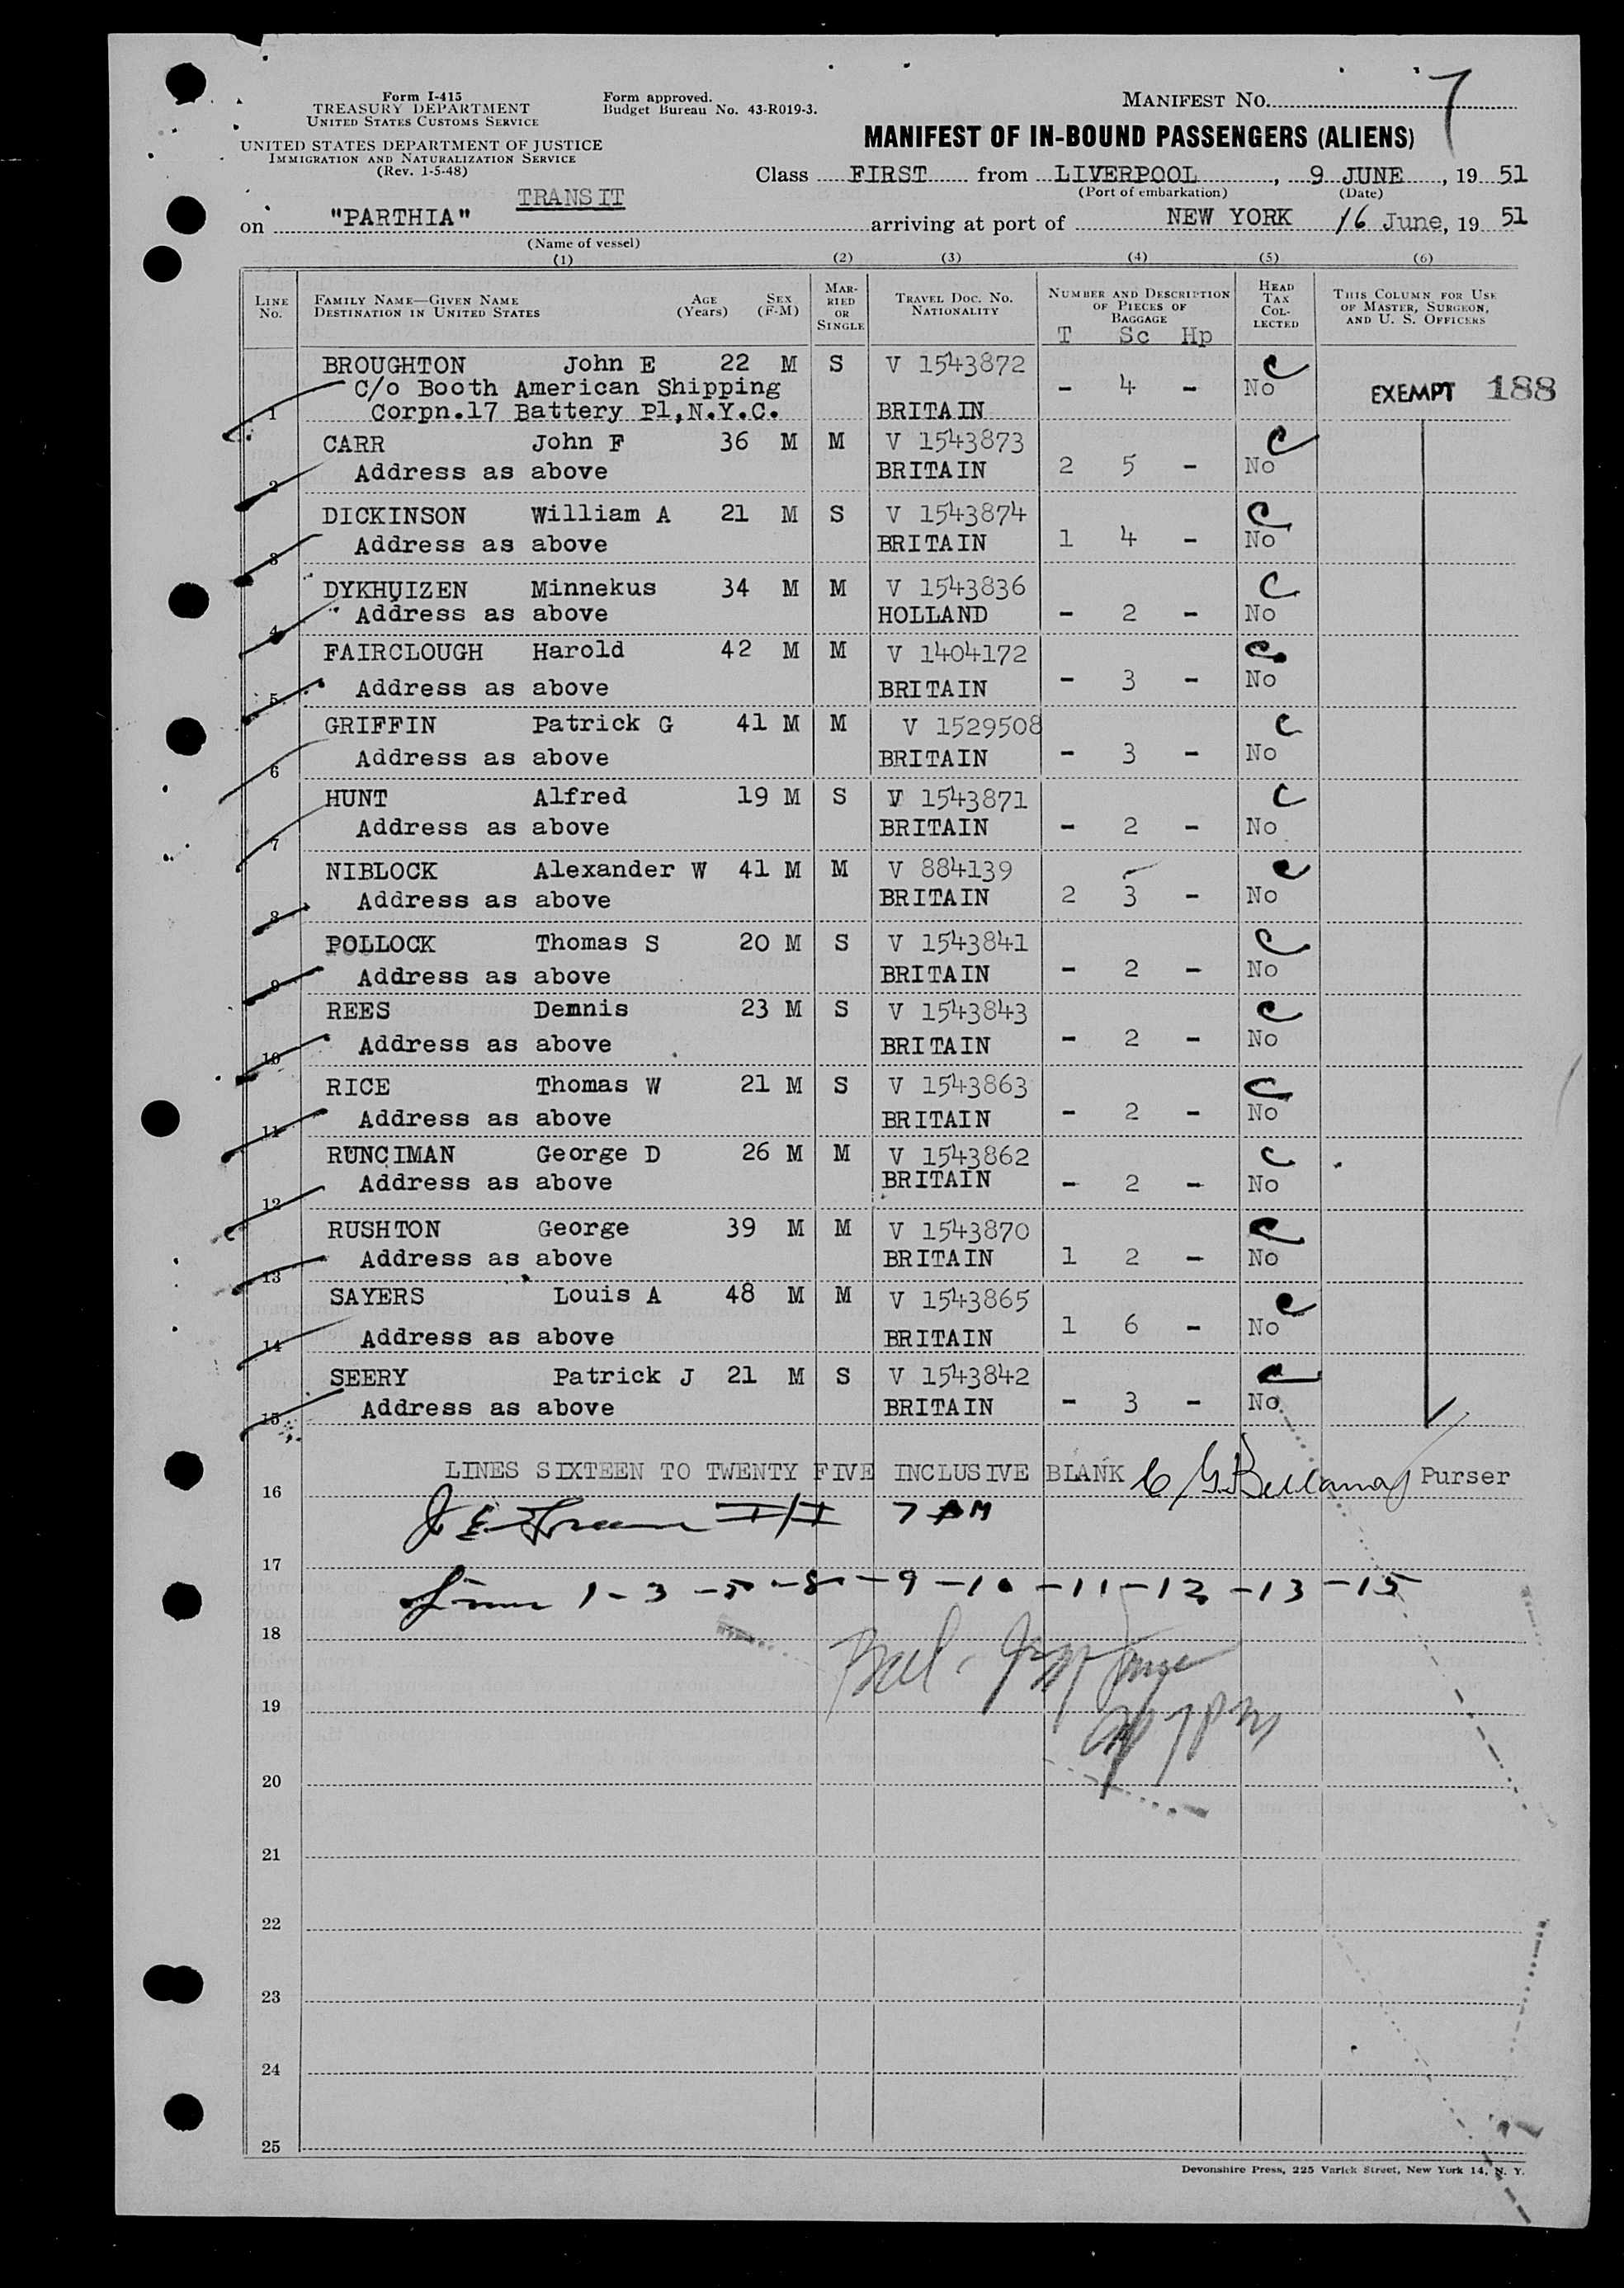 Form I-415
TREASURY DEPARTMENT
UNITED STATES CUSTOMS SERVICE
UNITED STATES DEPARTMENT OF JUSTICE
IMMIGRATION AND NATURALIZATION SERVICE
(Rev. 1-5-48)
Form approved.
Budget Bureau No. 43-R019-3.
MANIFEST No. 7
MANIFEST OF IN-BOUND PASSENGERS (ALIENS)
Class FIRST from LIVERPOOL, 9 JUNE, 19 51
(Port of embarkation) (Date)
TRANSIT
on "PARTHIA" arriving at port of NEW YORK 16 June, 19 51
(Name of vessel)
(1) (2) (3) (4) (5) (6)
LINE No. FAMILY NAME—GIVEN NAME DESTINATION IN UNITED STATES AGE (Years) SEX (F-M) MARRIED OR SINGLE TRAVEL DOC. NO. NATIONALITY NUMBER AND DESCRIPTION OF PIECES OF BAGGAGE HEAD TAX COLLECTED THIS COLUMN FOR USE OF MASTER, SURGEON, AND U. S. OFFICERS
T Sc Hp
BROUGHTON John E 22 M S V 1543872 C
C/o Booth American Shipping - 4 - No EXEMPT 188
1 Corpn.17 Battery Pl,N.Y.C. BRITAIN
CARR John F 36 M M V 1543873 C
2 Address as above BRITAIN 2 5 - No
DICKINSON William A 21 M S V 1543874 C
3 Address as above BRITAIN 1 4 - No
DYKHUIZEN Minnekus 34 M M V 1543836 C
4 Address as above HOLLAND - 2 - No
FAIRCLOUGH Harold 42 M M V 1404172 C
5 Address as above BRITAIN - 3 - No
GRIFFIN Patrick G 41 M M V 1529508 C
6 Address as above BRITAIN - 3 - No
HUNT Alfred 19 M S V 1543871 C
7 Address as above BRITAIN - 2 - No
NIBLOCK Alexander W 41 M M V 884139 C
8 Address as above BRITAIN 2 3 - No
POLLOCK Thomas S 20 M S V 1543841 C
9 Address as above BRITAIN - 2 - No
REES Dennis 23 M S V 1543843 C
10 Address as above BRITAIN - 2 - No
RICE Thomas W 21 M S V 1543863 C
11 Address as above BRITAIN - 2 - No
RUNCIMAN George D 26 M M V 1543862 C
12 Address as above BRITAIN - 2 - No
RUSHTON George 39 M M V 1543870 C
13 Address as above BRITAIN 1 2 - No
SAYERS Louis A 48 M M V 1543865 C
14 Address as above BRITAIN 1 6 - No
SEERY Patrick J 21 M S V 1543842 C
15 Address as above BRITAIN - 3 - No
LINES SIXTEEN TO TWENTY FIVE INCLUSIVE BLANK Purser
16
7 AM
17
Lines 1-3-5-8-9-10-11-12-13-15
18
19
20
21
22
23
24
25
Devonshire Press, 225 Varick Street, New York 14, N. Y.